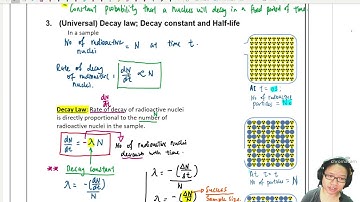 Constant probability that a nucleus will decay in a fixed period of time
3. (Universal) Decay law; Decay constant and Half-life
In a sample
No of radioactive nuclei = N at time t.
Rate of decay of radioactive nuclei = dN/dt ∝ N
dN/dt
Decay Law: Rate of decay of radioactive nuclei
is directly proportional to the number of
radioactive nuclei in the sample.
dN/dt = -λ N
No of radioactive nuclei
decreases with time.
** Decay constant
λ = -(dN/dt)/N
λ = -(ΔN/Δt)/N
λ = -(ΔN/N)
Success
Sample size
At t = 0
No of radioactive
particles = N₀
At t = t
No of particles = N